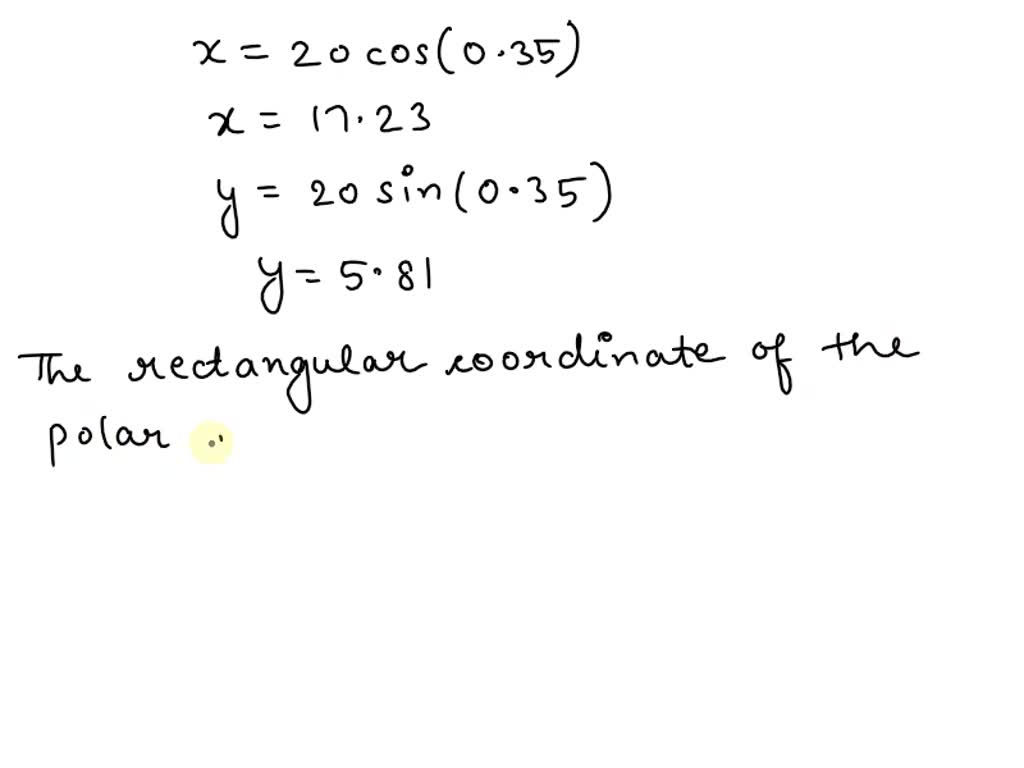 x = 20 cos(0.35)
x = 17.23
y = 20 sin(0.35)
y = 5.81
The rectangular coordinate of the
polar